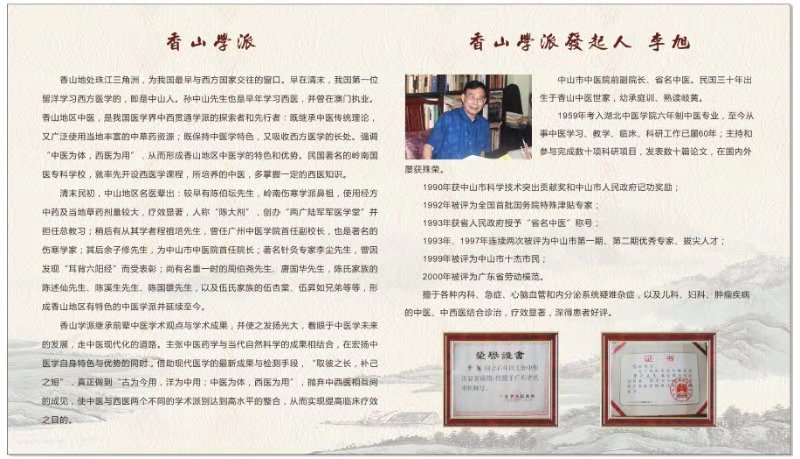 香山學派
香山地处珠江三角洲，为我国最早与西方国家交往的窗口。早在清末，我国第一位
留洋学习西方医学的，即是中山人。孙中山先生也是早年学习西医，并曾在澳门执业。
香山地区中医，是我国医学界中西贯通学派的探索者和先行者：既继承中医传统理论，
又广泛使用当地丰富的中草药资源；既保持中医学特色，又吸收西方医学的长处。强调
“中医为体，西医为用”，从而形成香山地区中医学的特色和优势。民国著名的岭南国
医专科学校，就率先开设西医学课程，所培养的中医，多掌握一定的西医知识。
清末民初，中山地区名医辈出：较早有陈伯坛先生，岭南伤寒学派鼻祖，使用经方
中药及当地草药剂量较大，疗效显著，人称“陈大剂”，创办“两广陆军军医学堂”并
担任总教习；稍后有从其学者程祖培先生，曾任广州中医学院首任副校长，也是著名的
伤寒学家；其后余子修先生，为中山市中医院首任院长；著名针灸专家李尘先生，曾因
发现“耳背六阳经”而受表彰；尚有名重一时的周伯尧先生、唐国华先生，陈氏家族的
陈述仙先生、陈溪生先生、陈国雄先生，以及伍氏家族的伍杏棠、伍昇如兄弟等等，形
成香山地区有特色的中医学派并延续至今。
香山学派继承前辈中医学术观点与学术成果，并使之发扬光大，着眼于中医学未来
的发展，走中医现代化的道路。主张中医药学与当代自然科学的成果相结合，在宏扬中
医学自身特色与优势的同时，借助现代医学的最新成果与检测手段，“取彼之长，补己
之短”，真正做到“古为今用，洋为中用；中医为体，西医为用”，抛弃中西医相互间
的成见，使中医与西医两个不同的学术派别达到高水平的整合，从而实现提高临床疗效
之目的。
香山學派發起人 李旭
中山市中医院前副院长、省名中医。民国三十年出
生于香山中医世家，幼承庭训、熟读岐黄。
1959年考入湖北中医学院六年制中医专业，至今从
事中医学习、教学、临床、科研工作已届60年；主持和
参与完成数十项科研项目，发表数十篇论文，在国内外
屡获殊荣。
1990年获中山市科学技术突出贡献奖和中山市人民政府记功奖励；
1992年被评为全国首批国务院特殊津贴专家；
1993年获省人民政府授予“省名中医”称号；
1993年、1997年连续两次被评为中山市第一期、第二期优秀专家、拔尖人才；
1999年被评为中山市十杰市民；
2000年被评为广东省劳动模范。
擅于各种内科、急症、心脑血管和内分泌系统疑难杂症，以及儿科、妇科、肿瘤疾病
的中医、中西医结合诊治，疗效显著，深得患者好评。
榮譽證書
证书